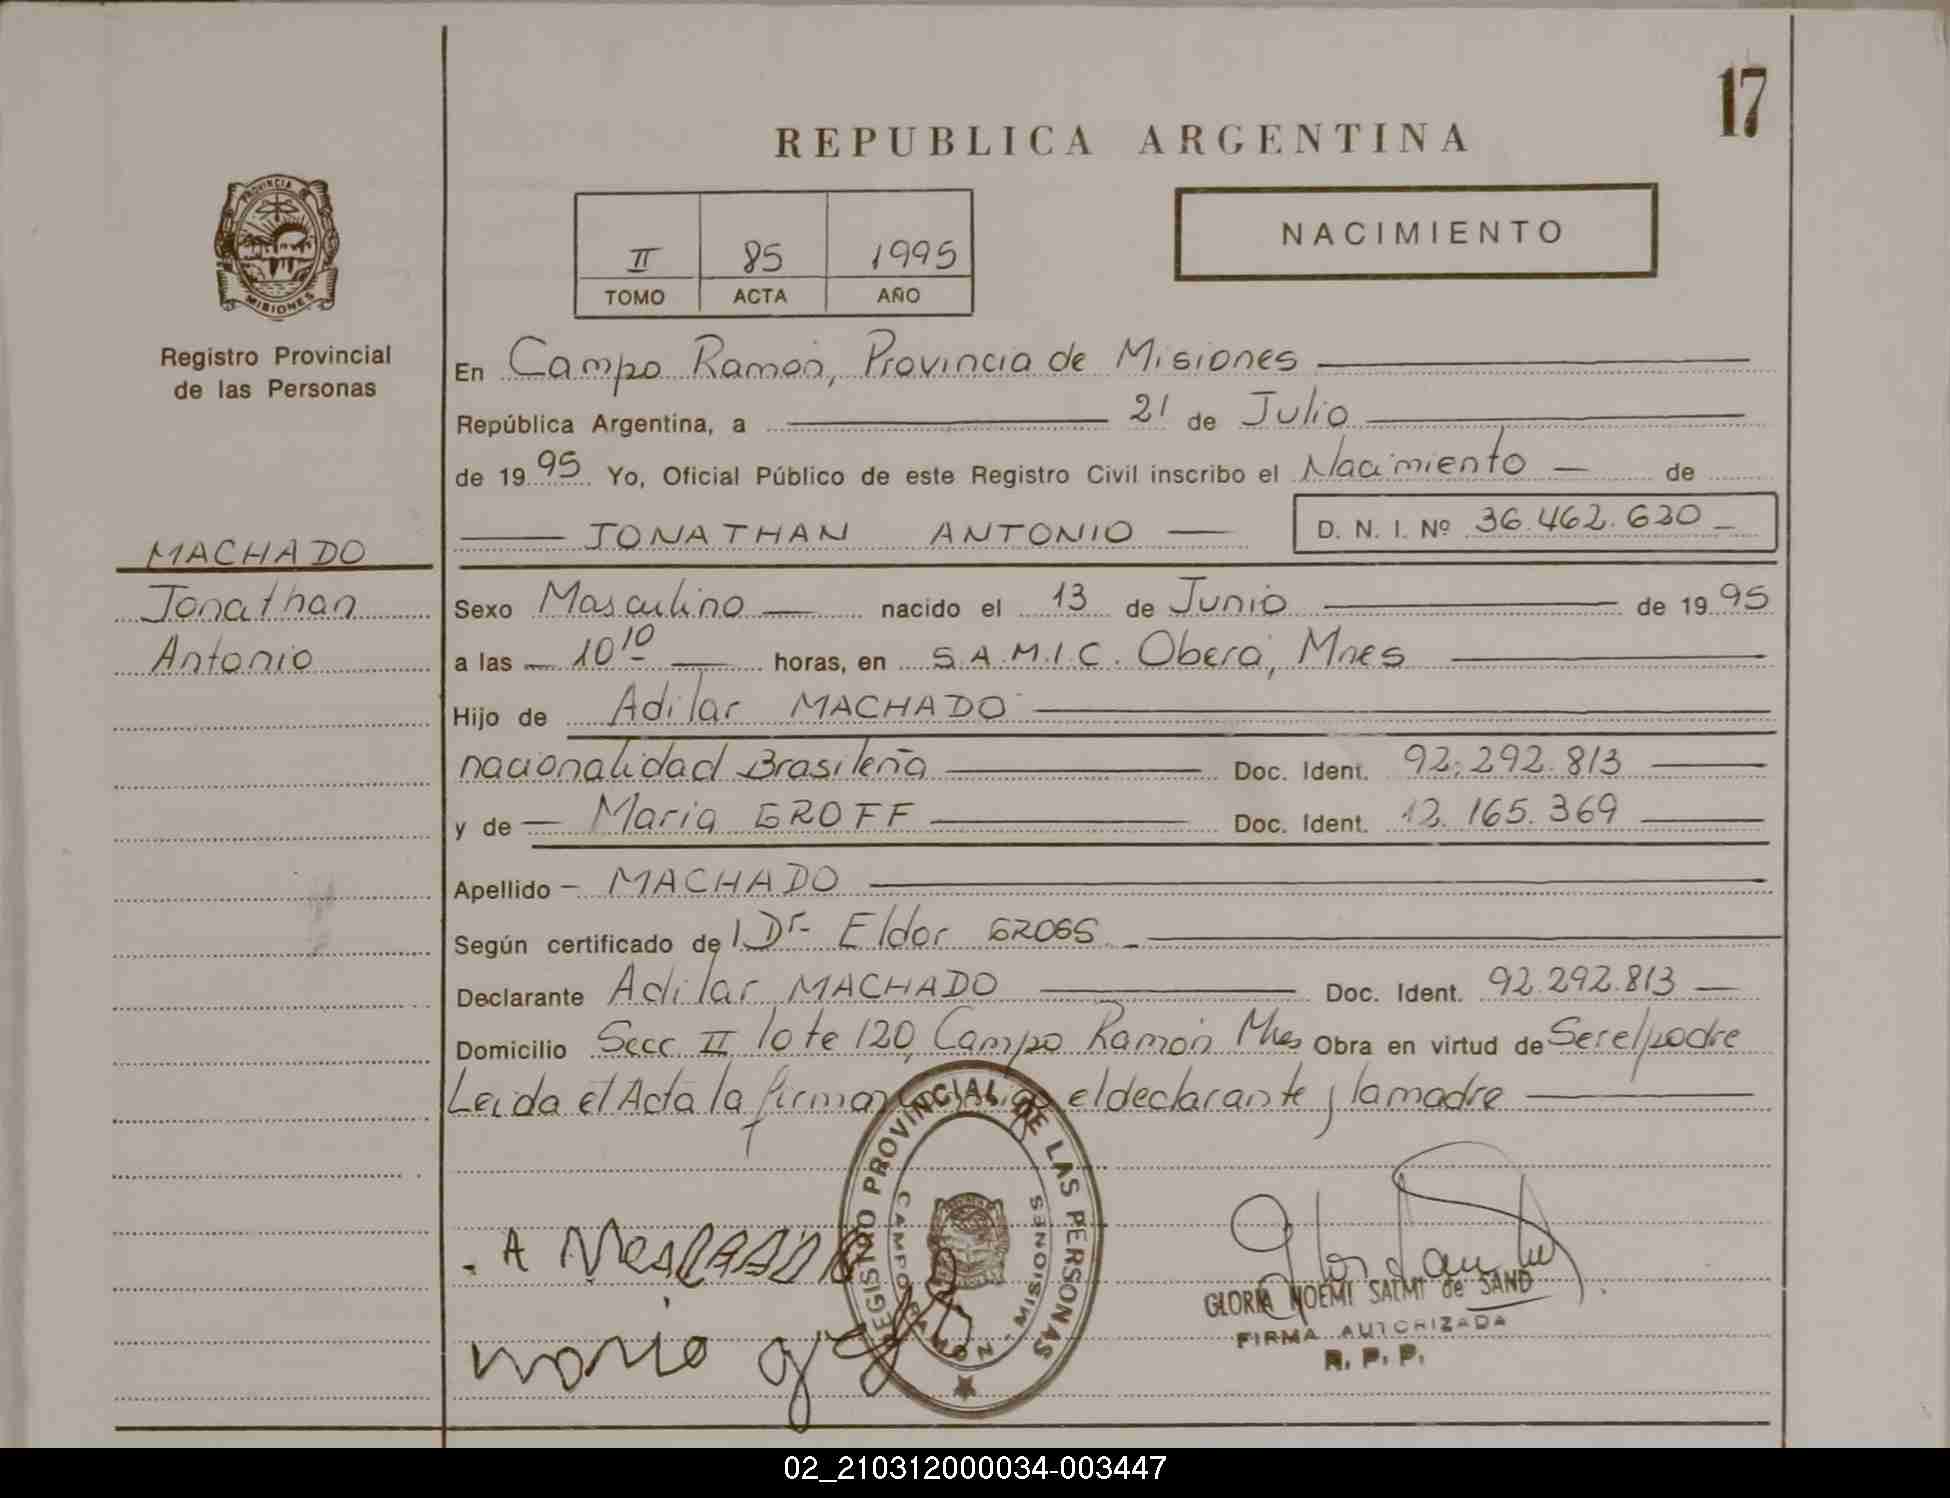 17
REPUBLICA ARGENTINA
PROVINCIA DE
MISIONES
Registro Provincial
de las Personas
II 85 1995
TOMO ACTA AÑO
NACIMIENTO
En Campo Ramón, Provincia de Misiones
República Argentina, a 21 de Julio
de 1995 Yo, Oficial Público de este Registro Civil inscribo el Nacimiento de
JONATHAN ANTONIO D. N. I. Nº 36.462.630
MACHADO
Jonathan
Antonio
Sexo Masculino nacido el 13 de Junio de 1995
a las 10 10 horas, en S.A.M.I.C. Oberá, Mnes
Hijo de Adilar MACHADO
nacionalidad Brasileña Doc. Ident. 92.292.813
y de Maria GROFF Doc. Ident. 12.165.369
Apellido MACHADO
Según certificado de Dr. Eldor GROSS
Declarante Adilar MACHADO Doc. Ident. 92.292.813
Domicilio Secc II lote 120, Campo Ramón Mnes Obra en virtud de Ser el padre
Leida el Acta la firman el declarante y la madre
REGISTRO PROVINCIAL DE LAS PERSONAS
CAMPO RAMON - MISIONES
A Machado
Maria
GLORIA NOEMI SALMI de SAND
FIRMA AUTORIZADA
R. P. P.
02_210312000034-003447